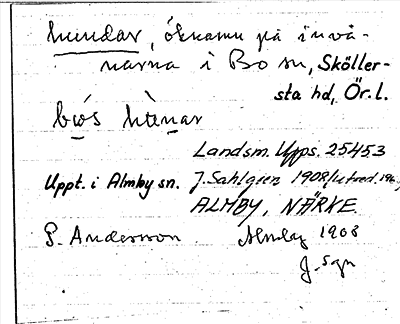 hundar, öknamn på invå-
narna i Bo sn, Sköller-
sta hd, Ör. l.
Landsm. Upps. 25453
Uppt. i Almby sn. J. Sahlgren 1908
ALMBY, NÄRKE.
P. Andersson Almby 1908
J. Sgn